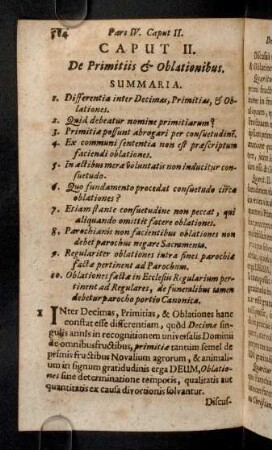 584 Pars IV. Caput II.
CAPUT II.
De Primitiis & Oblationibus.
SUMMARIA.
1. Differentia inter Decimas, Primitias, & Oblationes.
2. Quid debeatur nomine primitiarum?
3. Primitiæ possunt abrogari per consuetudinẽ.
4. Ex communi sententia non est præscriptum faciendi oblationes.
5. In actibus meræ voluntatis non inducitur consuetudo.
6. Quo fundamento procedat consuetudo circa oblationes?
7. Etiam stante consuetudine non peccat, qui aliquando omittit facere oblationes.
8. Parochianis non facientibus oblationes non debet parochus negare Sacramenta.
9. Regulariter oblationes intra fines parochiæ factæ pertinent ad Parochum.
10. Oblationes factæ in Ecclesiis Regularium pertinent ad Regulares, de funeralibus tamen debetur parocho portio Canonica.
1 INter Decimas, Primitias, & Oblationes hanc
constat esse differentiam, quòd Decimæ singulis
annis in recognitionem universalis Dominii
de omnibus fructibus, primitiæ tantum semel de
primis fructibus Novalium agrorum, & animalium
in signum gratidudinis erga DEUM, Oblationes
sine determinatione temporis, qualitatis aut
quantitatis ex causa divotionis solvantur.
Discus-